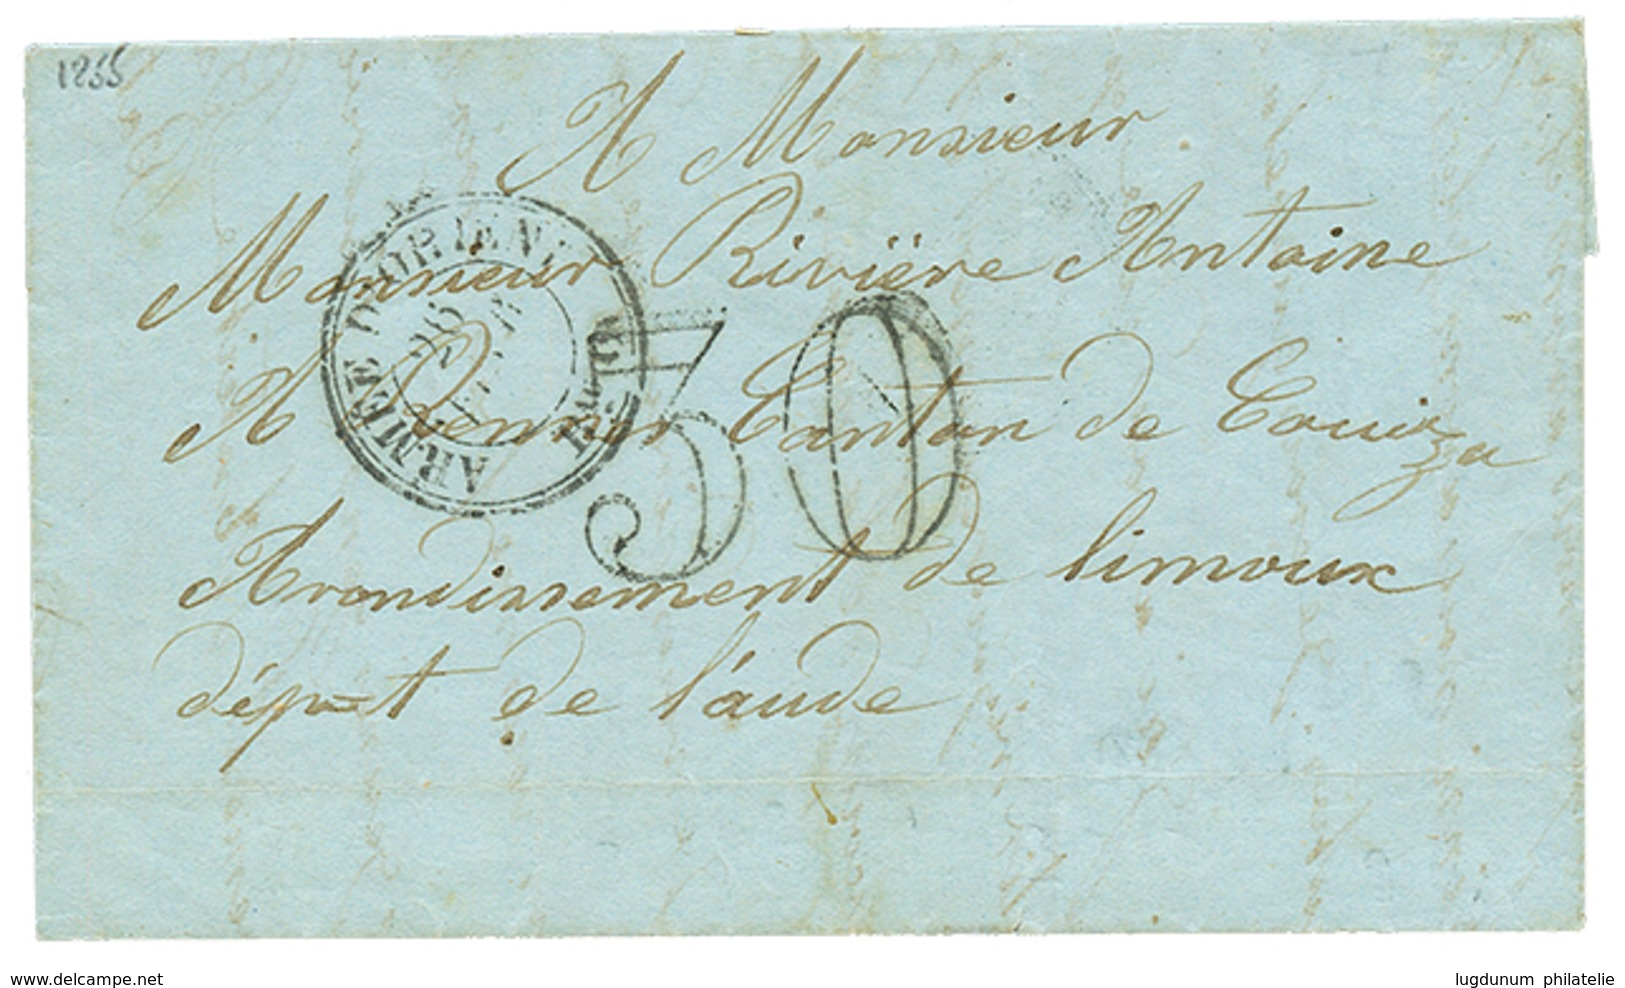 1855
A Monsieur
Monsieur Rivière Antoine
A Canton de Couiza
Arrondissement de limoux
dépt de l'aude
ARMÉE D'ORIENT
30
delcampe.net
lugdunum philatelie